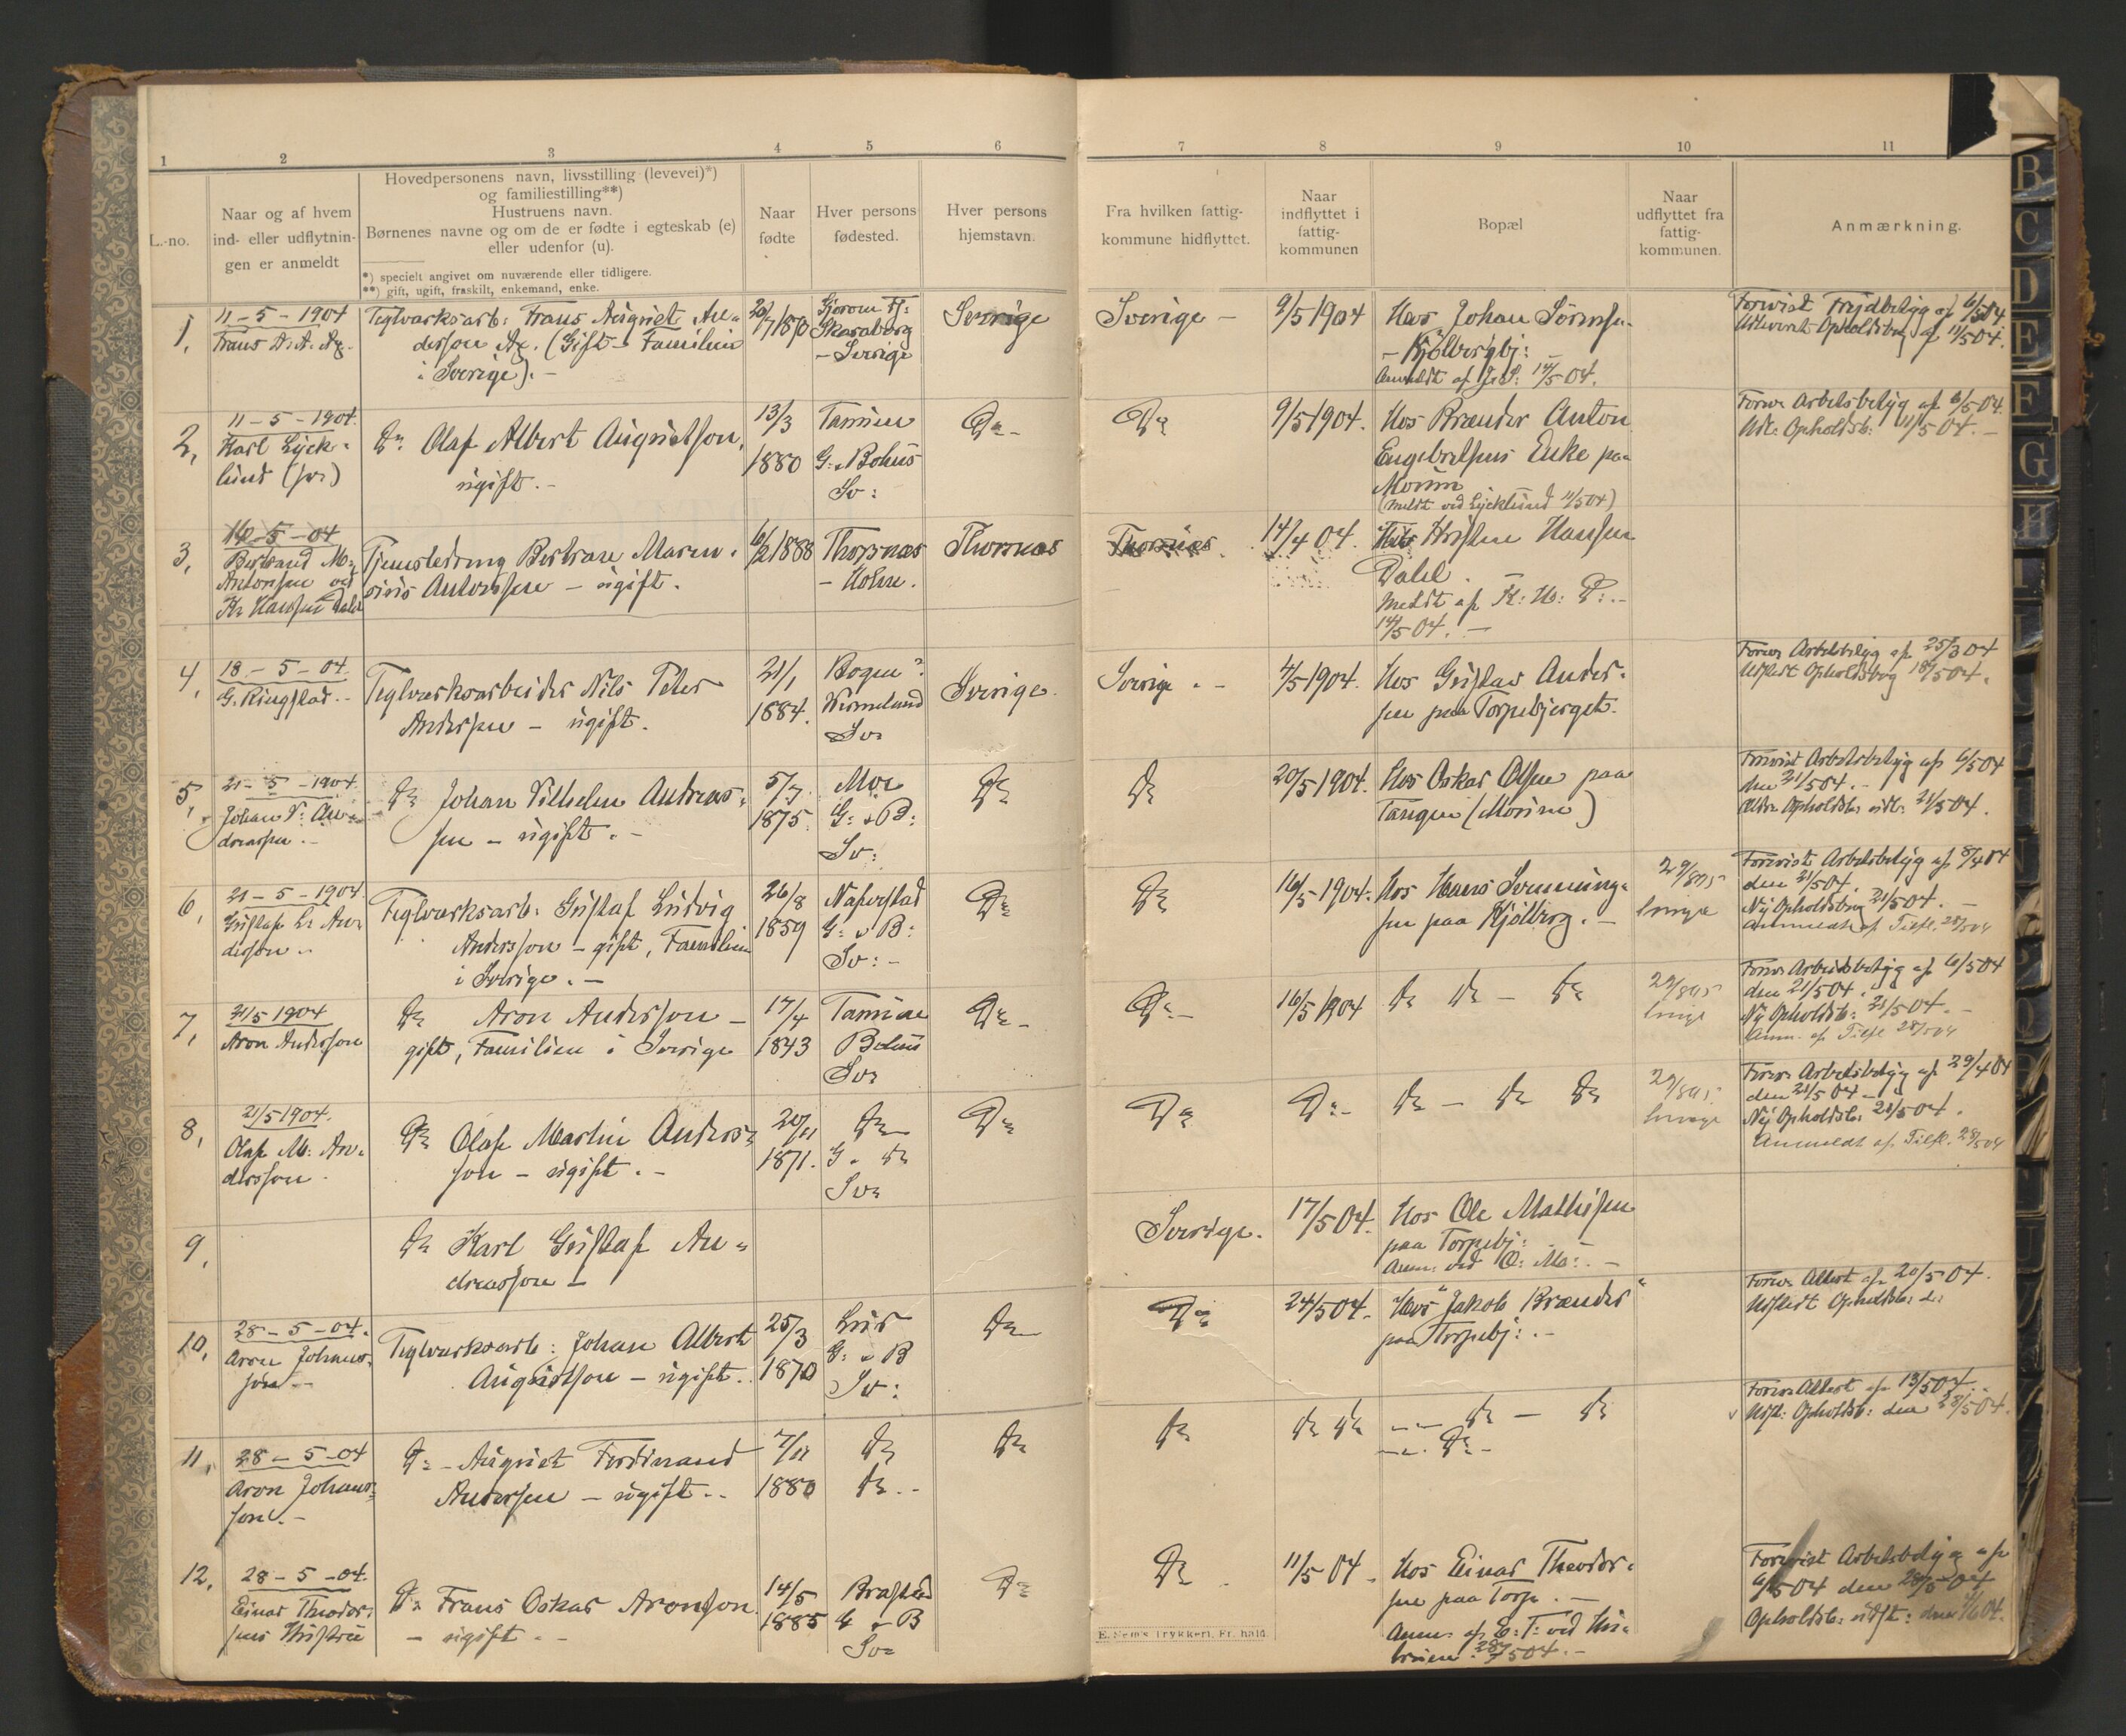 1 2 3 4 5 6 7 8 9 10 11
L.-no.
Naar og af hvem
ind- eller udflytnin-
gen er anmeldt
Hovedpersonens navn, livsstilling (levevei)*)
og familiestilling**)
Hustruens navn.
Børnenes navne og om de er fødte i egteskab (e)
eller udenfor (u).
*) specielt angivet om nuværende eller tidligere.
**) gift, ugift, fraskilt, enkemand, enke.
Naar
fødte
Hver persons
fødested.
Hver persons
hjemstavn.
Fra hvilken fattig-
kommune hidflyttet.
Naar
indflyttet i
fattig-
kommunen
Bopæl
Naar
udflyttet fra
fattig-
kommunen.
Anmærkning.
1,
11-5-1904
Frans A. Ag.
Teglværksarb: Frans August An-
dersson Ag. (Gift - Familien
i Sverige). -
20/7 1870
Skaraborg
- Sverige
Sverige
Sverige -
9/5 1904
Hos Johan Sörense
- Kjölbergbj:
Anmeldt af J. S: 14/5 04.
Forevist Frejdbetyg af 6/5 04
Udleveret Opholdsbog af 11/5 04.
2,
11-5-1904.
Karl Lyck-
lund (for)
Do Olaf Albert Augustson,
ugift. -
13/3
1880
Tanum
G: o Bohus
Sv:
Do -
Do
9/5 1904.
Hos Brænder Anton
Engebretsens Enke paa
Moum
(meldt ved Lycklund 11/5 04)
Forev. Arbetsbetyg af 6/5 04.
Udl: Opholdsb: 11/5 04. -
3,
14-5-04
Bertrand M.
Antonsen ved
Kr Hansen Dahl
Tjenstedreng Bertran Marin-
ius Antonsen - ugift.
6/2 1888
Thorsnæs
- Holm.
Thorsnæs
Thorsnæs
14/4 04.
Hos Kristen Hansen
Dahl.
Meldt af K: H: D: -
14/5 04. -
4,
18-5-04.
G. Ringstad. -
Teglværksarbeider Nils Peter
Andersen - ugift.
21/1
1884.
Bogen?
Wermeland
Sv.
Sverige.
Sverige. -
4/5 1904.
Hos Gustav Ander-
sen paa Torpebjerget.
Forev Arbetsbetyg af 25/3 04
Udstedt Opholdsbog 18/5 04.
5,
21-5-1904.
Johan V: An-
dreasen. -
Do Johan Vilhelm Andreas-
sen - ugift. -
5/7
1875.
Moe
G: o B:
Sv:
Do
Do
20/5 1904.
Hos Oskar Olsen paa
Tangen (Moum)
Forevist Arbetsbetyg af 6/5 04
den 21/5 04. -
Ældre Opholdsb. udl: 21/5 04.
6,
21-5-1904
Gustaf L. An-
derson. -
Teglværksarb: Gustaf Ludvig
Andersson - gift, Familien
i Sverige. -
26/8
1859
Naverstad
G: o B:
Sv: -
Do
Do
16/5 1904.
Hos Hans Svenning-
sen paa Kjölberg. -
29/8 05
Forevist Arbetsbetyg af 8/4 04
den 21/5 04.
Ny Opholdsbog 21/5 04. -
Anmeldt af Tilfl. 28/5 04
7,
21/5 1904
Aron Andersson
Do Aron Andersson -
gift, Familien i Sverige
17/4
1843
Tanum
Bohus
Sv.
Do -
Do -
16/5 1904
Do Do - Do
29/8 05
Forev. Arbeidsbetyg af 6/5 04
den 21/5 04.
Ny Opholdsb: 21/5 04. -
Anm. af Tilfl 28/5 04
8,
21/5 1904.
Olaf M: An-
dersson.
Do Olaf Martin Anders-
son - ugift. -
20/11
1871.
Do
G o Do
Sv.
Do
Do
Do -
Do - Do Do
29/8 05.
Forev. Arbetsbetyg af 29/4 04
den 21/5 04 -
Ny Opholdsb: 21/5 04.
Anmeldt af Tilfl. 28/5 04
9,
Do Karl Gustaf An-
dreasson -
Sverige.
17/5 04.
Hos Ole Mathisen
paa Torpebj:
Anm: ved O: M: -
10,
28-5-04.
Aron Johans-
son. -
Teglværksarb: Johan Albert
Augustson - ugift.
25/3
1870
Lur
G: o B
Sv:
Do
Do
24/5 04.
Hos "Jakob Brænder"
paa Torpebj: -
Forev. Attest af 20/5 04.
Udstedt Opholdsb: d:
11,
28-5-04
Aron Johans-
son. -
Do - August Ferdinand
Andersen - ugift. -
7/11
1880
Do
Do. -
Do
Do
Do Do
- - Do - Do
- . Do -
Forev. Attest af 13/5 04.
Udst: Opholdsb: den 28/5 04.
12,
28-5-04.
Einar Theodor-
sens Hustru
Do Frans Oskar Aronson
- ugift. -
14/5
1885
Brastad
G o B
Sv.
Do
Do
11/5 04.
Hos Einar Theodor-
sen paa Torp. -
Anm: af E: T: ved Hu-
struen 28/5 04. -
Forevist Arbetsbetyg af
6/5 04 den 28/5 04
Opholdsb: udst: den 1/6 04.
E. Sem's Trykkeri, Fr.hald.
B
C
D
E
F
G
H